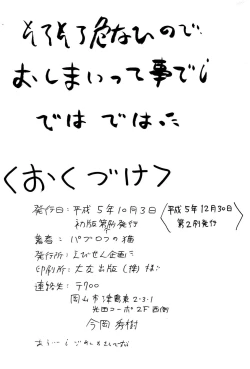 そろそろ危ないので
おしまいって事で
では では
〈おくづけ〉
発行日：平成5年10月3日
初版第1刷発行
〈平成5年12月30日
第2刷発行〉
著者：パブロフの猫
発行所：えびせん企画
印刷所：大友出版(株)
連絡先：〒700
岡山市津島東2-3-1
2F西側
今岡秀樹